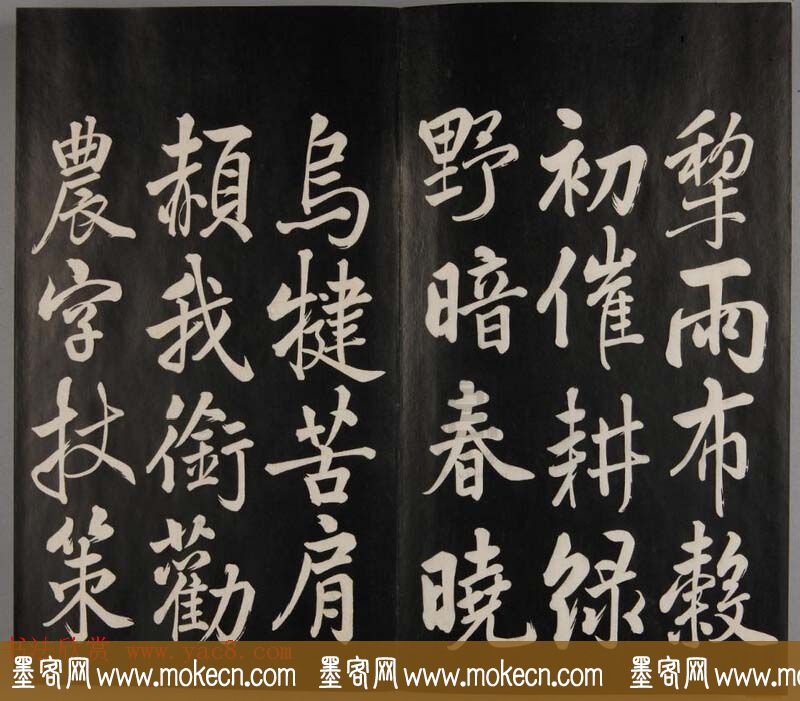 犂雨布穀
初催耕綠
野暗春曉
烏犍苦肩
赬我銜勸
農字杖策
书法欣赏 www.yac8.com
墨客网 www.mokecn.com 墨客网 www.mokecn.com 墨客网 www.mokecn.com